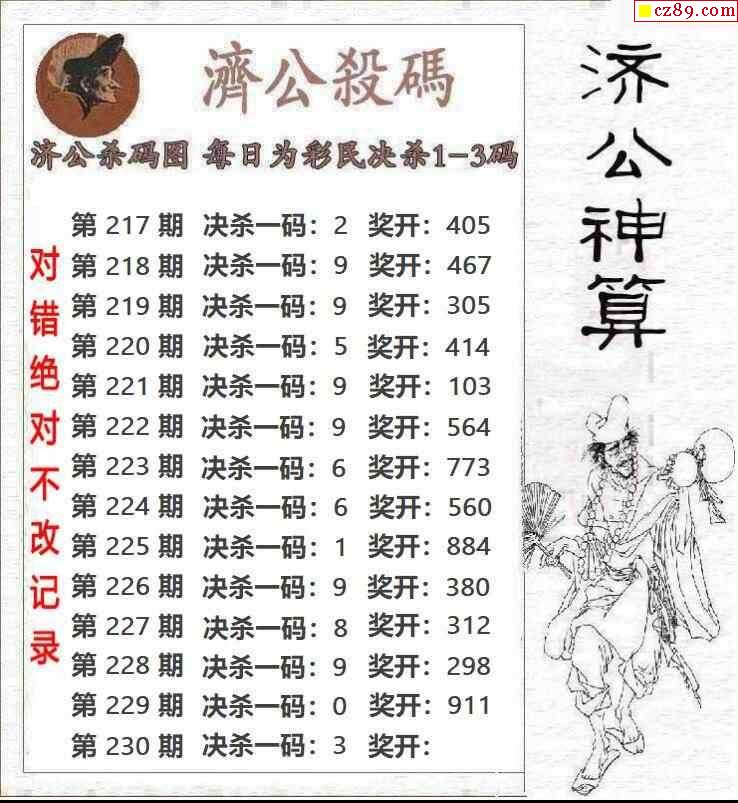 cz89.com
濟公殺碼
济公杀码图 每日为彩民决杀1-3码
第 217 期 决杀一码：2 奖开：405
第 218 期 决杀一码：9 奖开：467
第 219 期 决杀一码：9 奖开：305
第 220 期 决杀一码：5 奖开：414
第 221 期 决杀一码：9 奖开：103
第 222 期 决杀一码：9 奖开：564
第 223 期 决杀一码：6 奖开：773
第 224 期 决杀一码：6 奖开：560
第 225 期 决杀一码：1 奖开：884
第 226 期 决杀一码：9 奖开：380
第 227 期 决杀一码：8 奖开：312
第 228 期 决杀一码：9 奖开：298
第 229 期 决杀一码：0 奖开：911
第 230 期 决杀一码：3 奖开：
对错绝对不改记录
济公神算